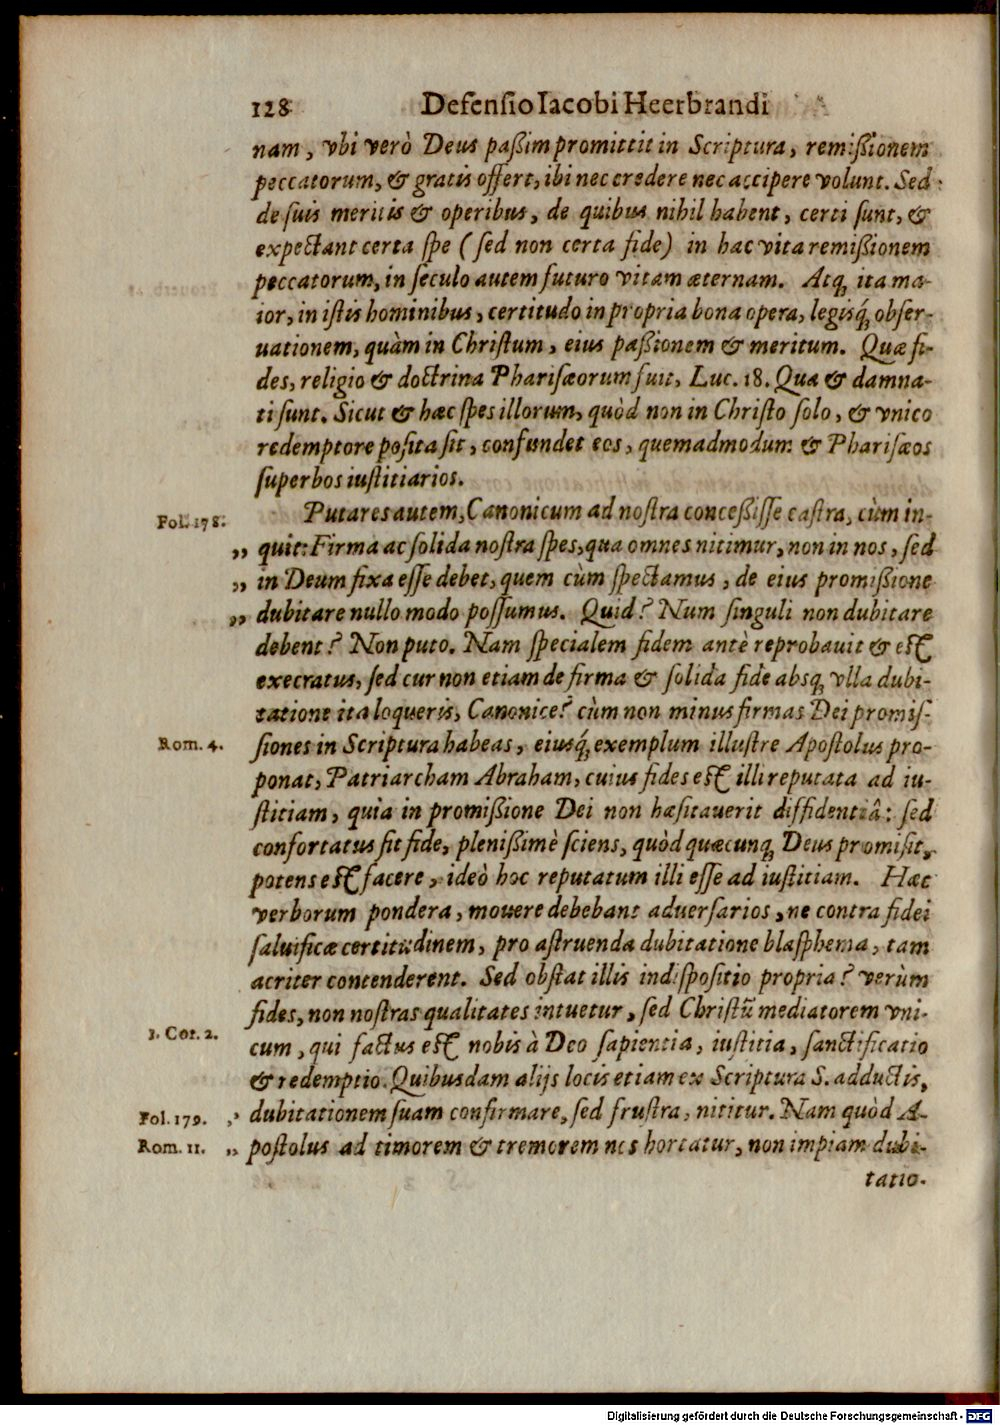 128 Defensio Iacobi Heerbrandi
nam, vbi verò Deus paßim promittit in Scriptura, remißionem
peccatorum, & gratis offert, ibi nec credere nec accipere volunt. Sed
de suis meritis & operibus, de quibus nihil habent, certi sunt, &
expectant certa spe (sed non certa fide) in hac vita remißionem
peccatorum, in seculo autem futuro vitam æternam. Atq; ita ma-
ior, in istis hominibus, certitudo in propria bona opera, legisq́; obser-
uationem, quàm in Christum, eius paßionem & meritum. Quæ fi-
des, religio & doctrina Pharisæorum fuit, Luc. 18. Qua & damna-
ti sunt. Sicut & hæc spes illorum, quòd non in Christo solo, & vnico
redemptore posita sit, confundet eos, quemadmodum & Pharisæos
superbos iustitiarios.
Fol. 178. Putares autem, Canonicum ad nostra conceßisse castra, cùm in-
„ quit: Firma ac solida nostra spes, qua omnes nitimur, non in nos, sed
„ in Deum fixa esse debet, quem cùm spectamus, de eius promißione
„ dubitare nullo modo possumus. Quid? Num singuli non dubitare
debent? Non puto. Nam specialem fidem antè reprobauit & est
execratus, sed cur non etiam de firma & solida fide absq; vlla dubi-
tatione ita loqueris, Canonice? cùm non minus firmas Dei promis-
Rom. 4. siones in Scriptura habeas, eiusq́; exemplum illustre Apostolus pro-
ponat, Patriarcham Abraham, cuius fides est illi reputata ad iu-
stitiam, quia in promißione Dei non hæsitauerit diffidentiâ: sed
confortatus sit fide, plenißimè sciens, quòd quæcunq; Deus promisit,
potens est facere, ideò hoc reputatum illi esse ad iustitiam. Hæc
verborum pondera, mouere debebant aduersarios, ne contra fidei
saluificæ certitudinem, pro astruenda dubitatione blasphema, tam
acriter contenderent. Sed obstat illis indispositio propria? verùm
fides, non nostras qualitates intuetur, sed Christũ mediatorem vni-
1. Cor. 2. cum, qui factus est nobis à Deo sapientia, iustitia, sanctificatio
& redemptio. Quibusdam alijs locis etiam ex Scriptura S. adductis,
Fol. 179. „ dubitationem suam confirmare, sed frustra, nititur. Nam quòd A-
Rom. 11. „ postolus ad timorem & tremorem nos hortatur, non impiam dubi-
tatio-
Digitalisierung gefördert durch die Deutsche Forschungsgemeinschaft - DFG